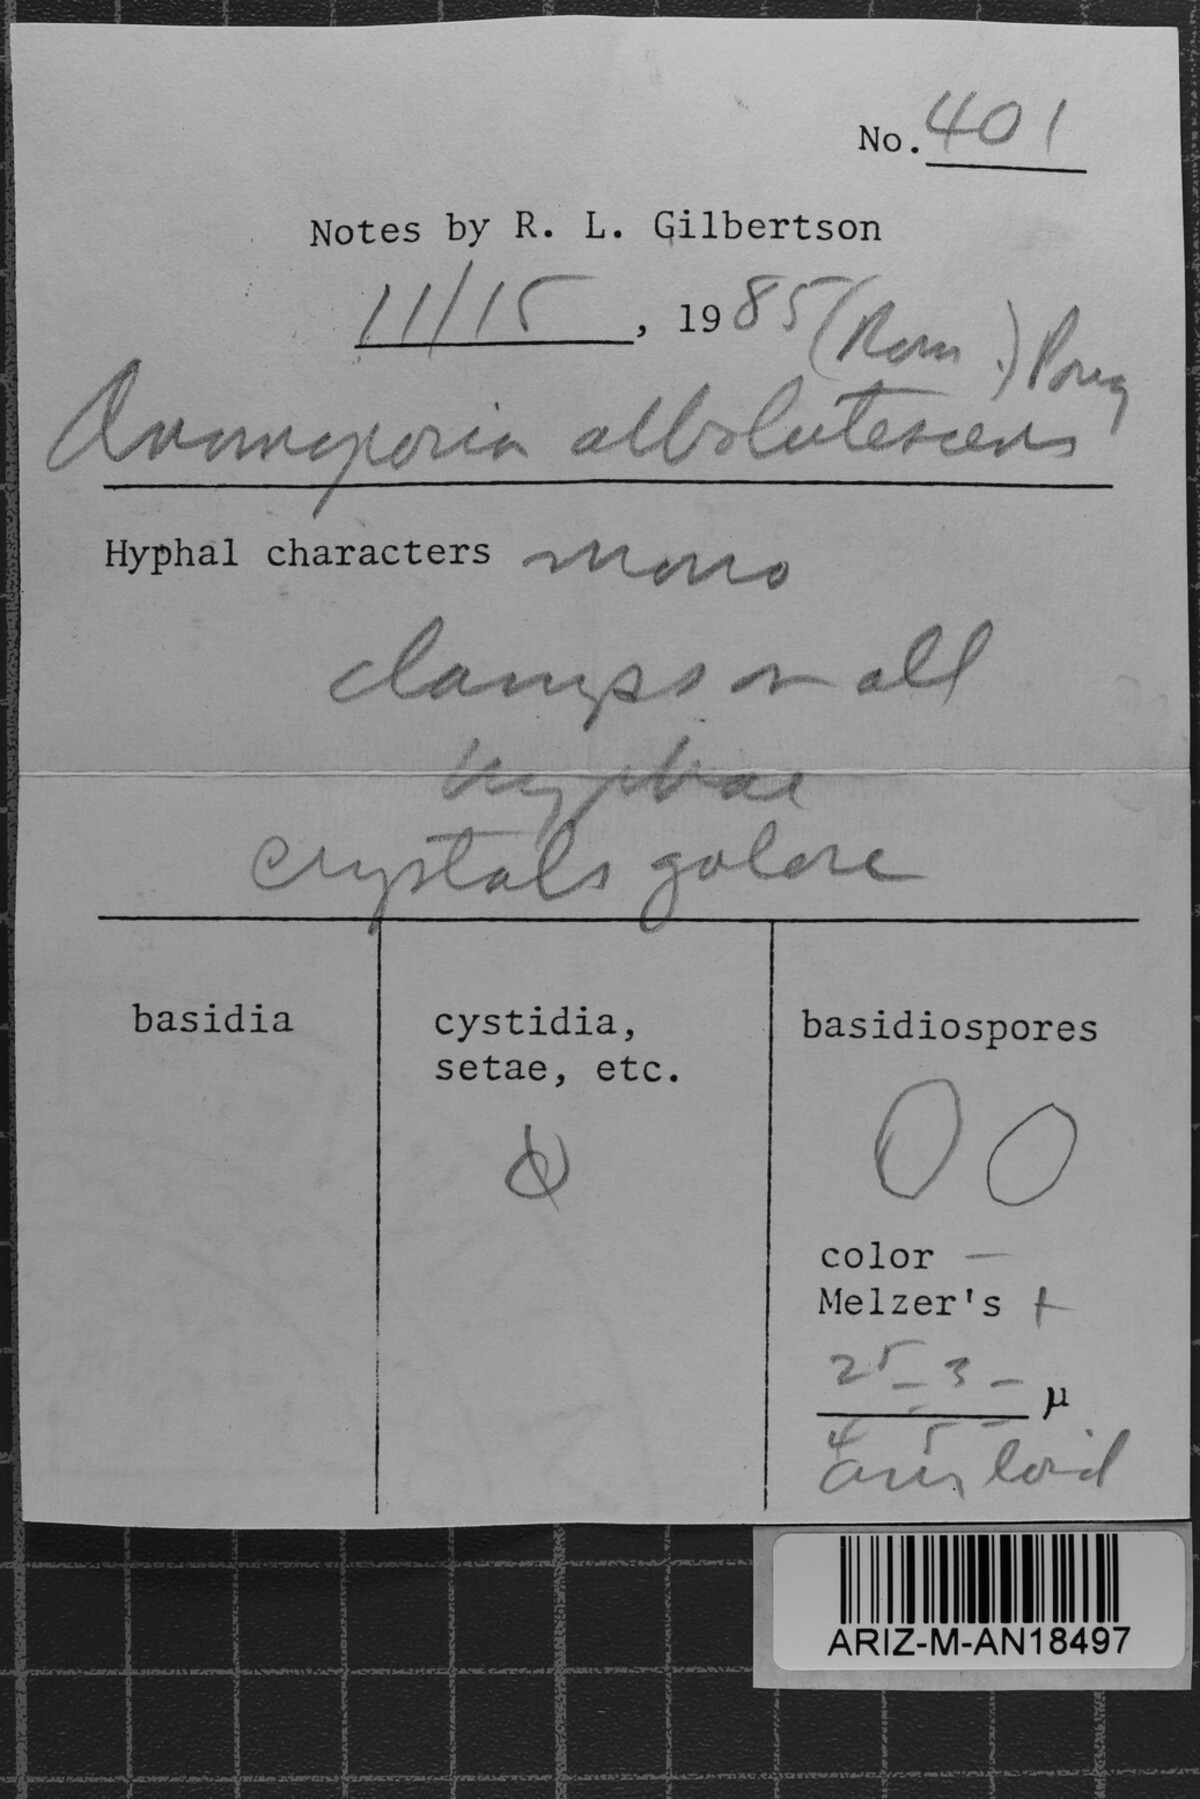 No. 401
Notes by R. L. Gilbertson
11/15, 1985 (Rom.) Pouz
Anomoporia albolutescens
Hyphal characters mono
clamps on all
hyphae
crystals galore
basidia
cystidia,
setae, etc.
basidiospores
color —
Melzer's +
25 – 3 – µ
4 5
amyloid
ARIZ-M-AN18497